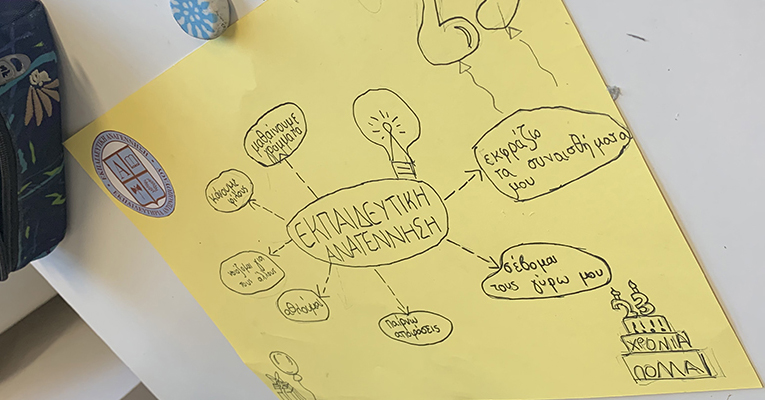 μαθαίνουμε
γράμματα
εκφράζω
τα συναισθήματα
μου
κάνουμε
φίλους
ΕΚΠΑΙΔΕΥΤΙΚΗ
ΑΝΑΓΕΝΝΗΣΗ
νοιάζομαι για
τους άλλους
σέβομαι
τους γύρω μου
παίρνω
αποφάσεις
23
ΧΡΟΝΙΑ
ΠΟΛΛΑ!